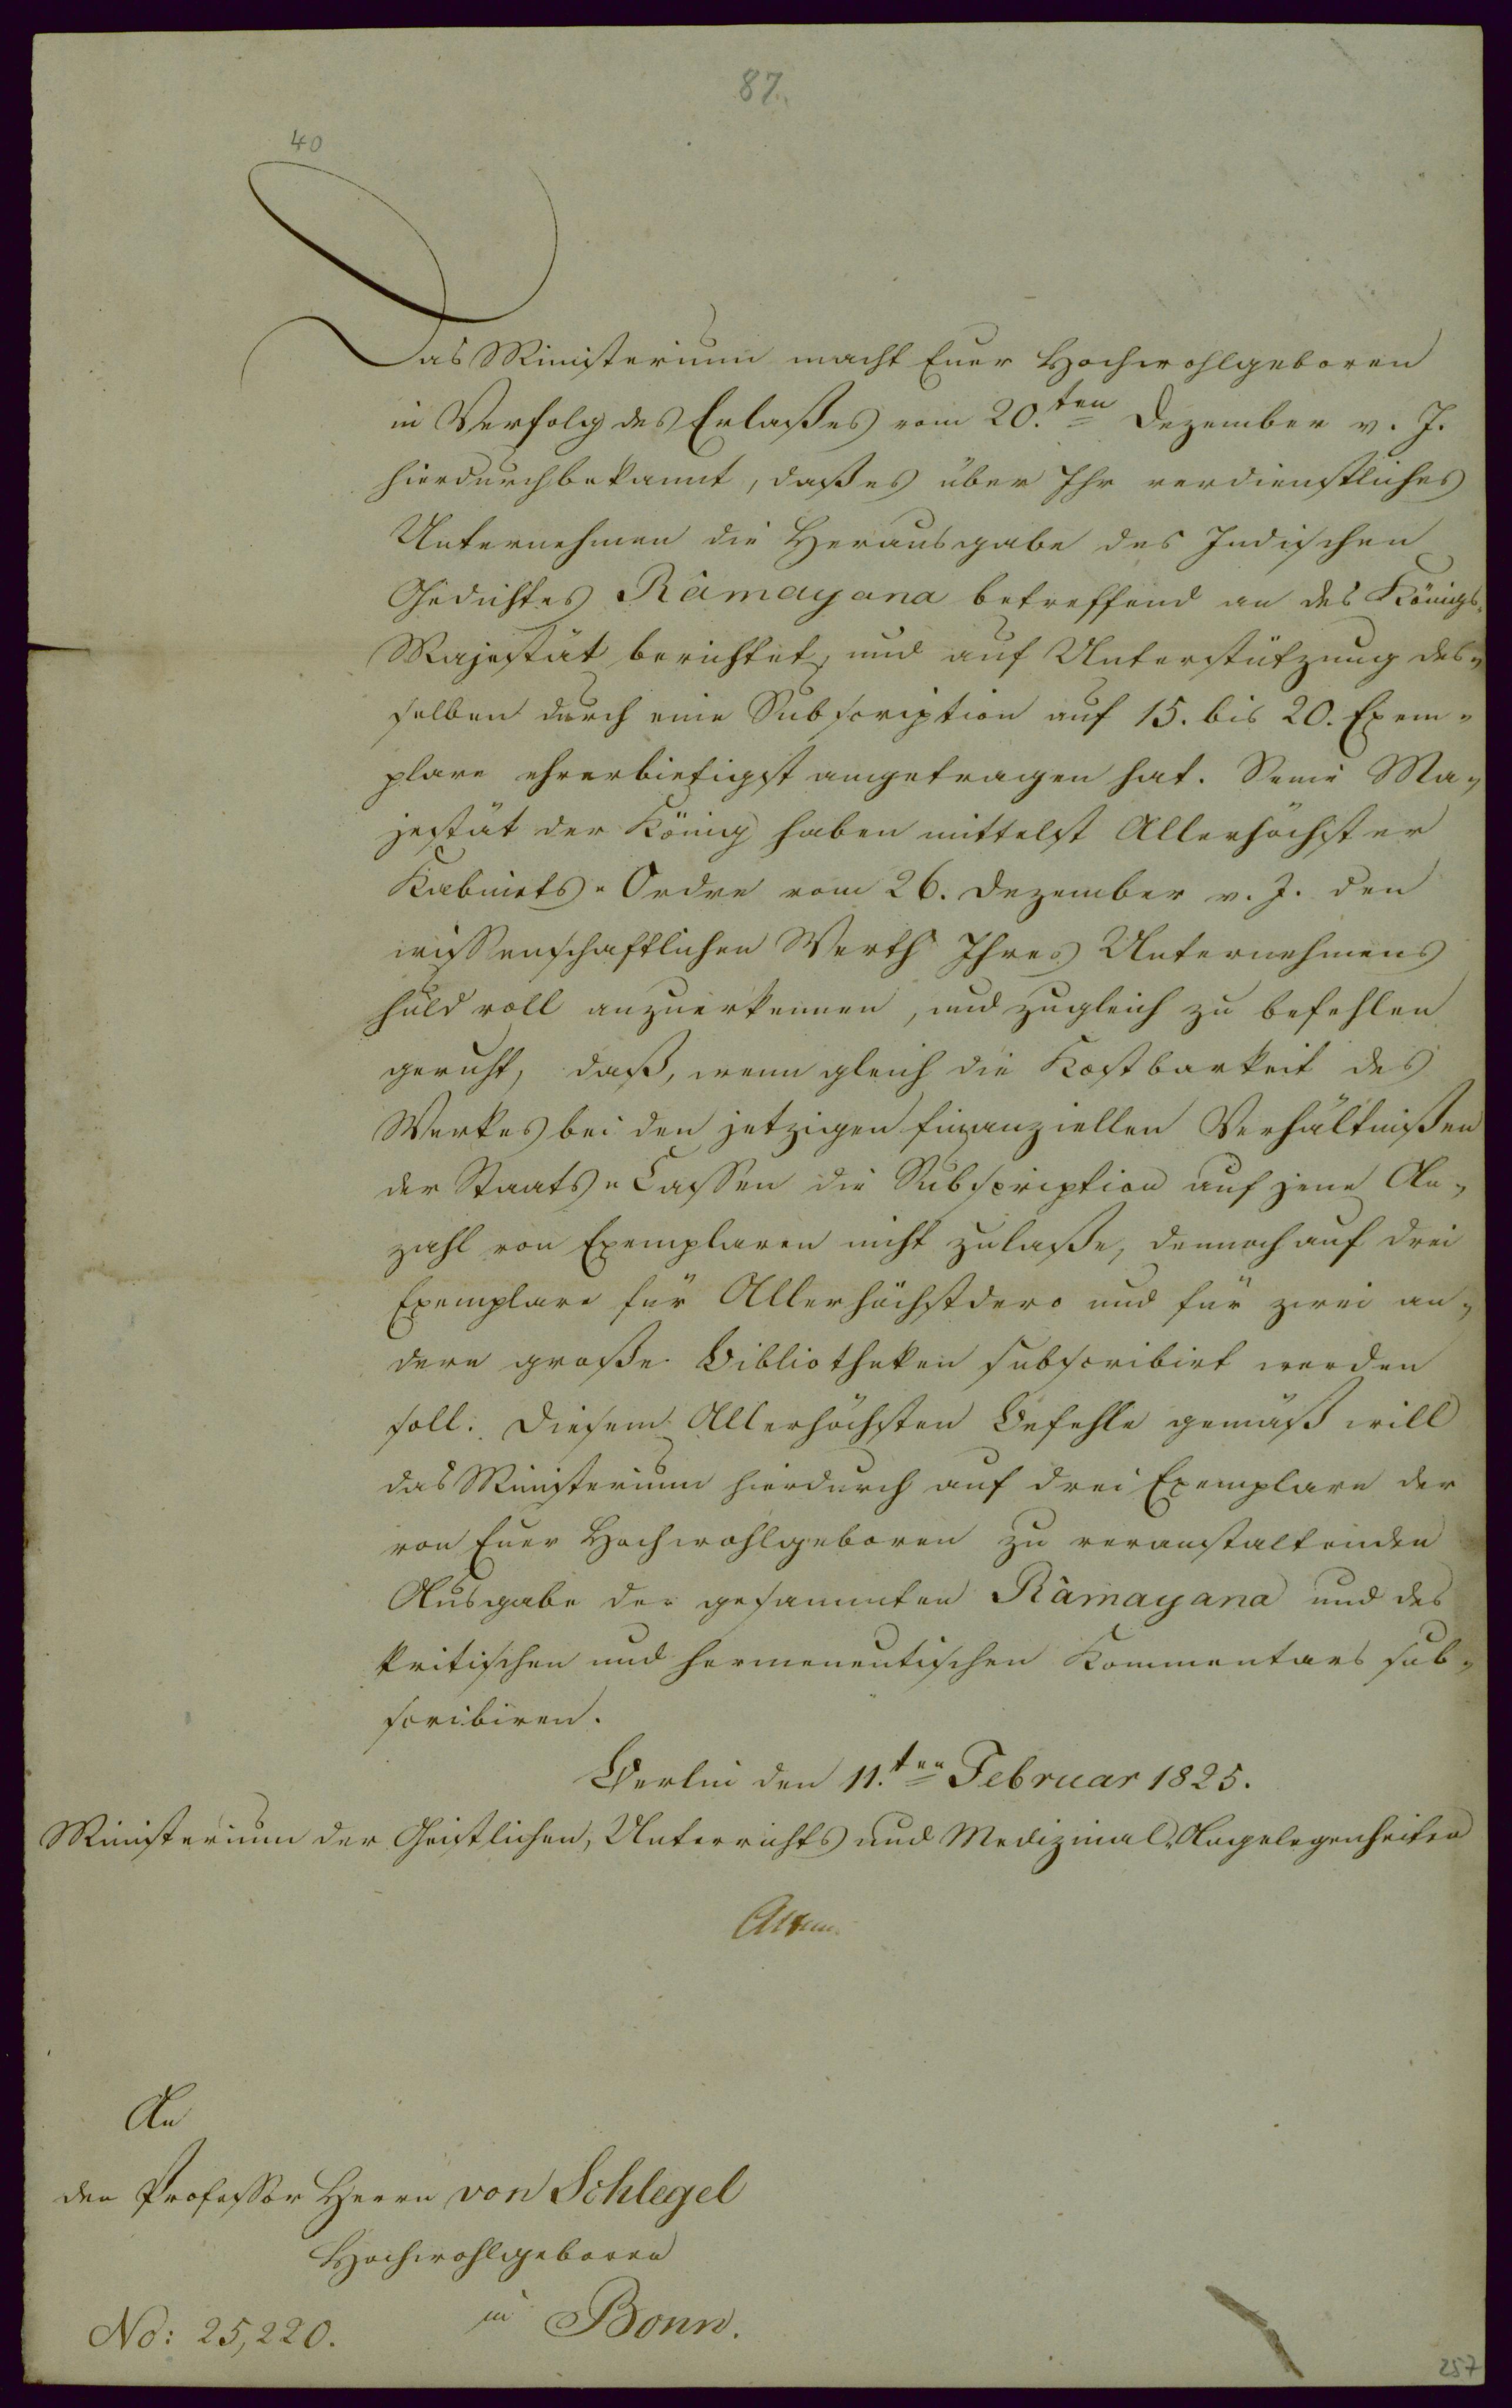 87.
40
Das Ministerium macht Euer Hochwohlgeboren
in Verfolg des Erlaßes vom 20.ten Dezember v. J.
hierdurch bekannt, daß es über Ihr verdienstliches
Unternehmen die Herausgabe des Indischen
Gedichtes Râmayana betreffend an des Königs
Majestät berichtet, und auf Unterstützung des-
selben durch eine Subscription auf 15. bis 20. Exem-
plare ehrerbietigst angetragen hat. Seine Ma-
jestät der König haben mittelst Allerhöchster
Kabinets-Ordre vom 26. Dezember v. J. den
wissenschaftlichen Werth Ihres Unternehmens
huldvoll anzuerkennen, und zugleich zu befehlen
geruht, daß, wenn gleich die Kostbarkeit des
Werkes bei den jetzigen finanziellen Verhältnißen
der Staats-Cassen die Subscription auf jene An-
zahl von Exemplaren nicht zulaße, dennoch auf drei
Exemplare für Allerhöchstdero und für zwei an-
dere große Bibliotheken subscribirt werden
soll. Diesem Allerhöchsten Befehle gemäß will
das Ministerium hierdurch auf drei Exemplare der
von Euer Hochwohlgeboren zu veranstaltenden
Ausgabe der gesammten Râmayana und des
kritischen und hermeneutischen Kommentars sub-
scribiren.
Berlin den 11.ten Februar 1825.
Ministerium der Geistlichen, Unterrichts und Medizinal-Angelegenheiten
Altenst.
An
den Professor Herrn von Schlegel
Hochwohlgeboren
in Bonn.
No: 25,220.
257